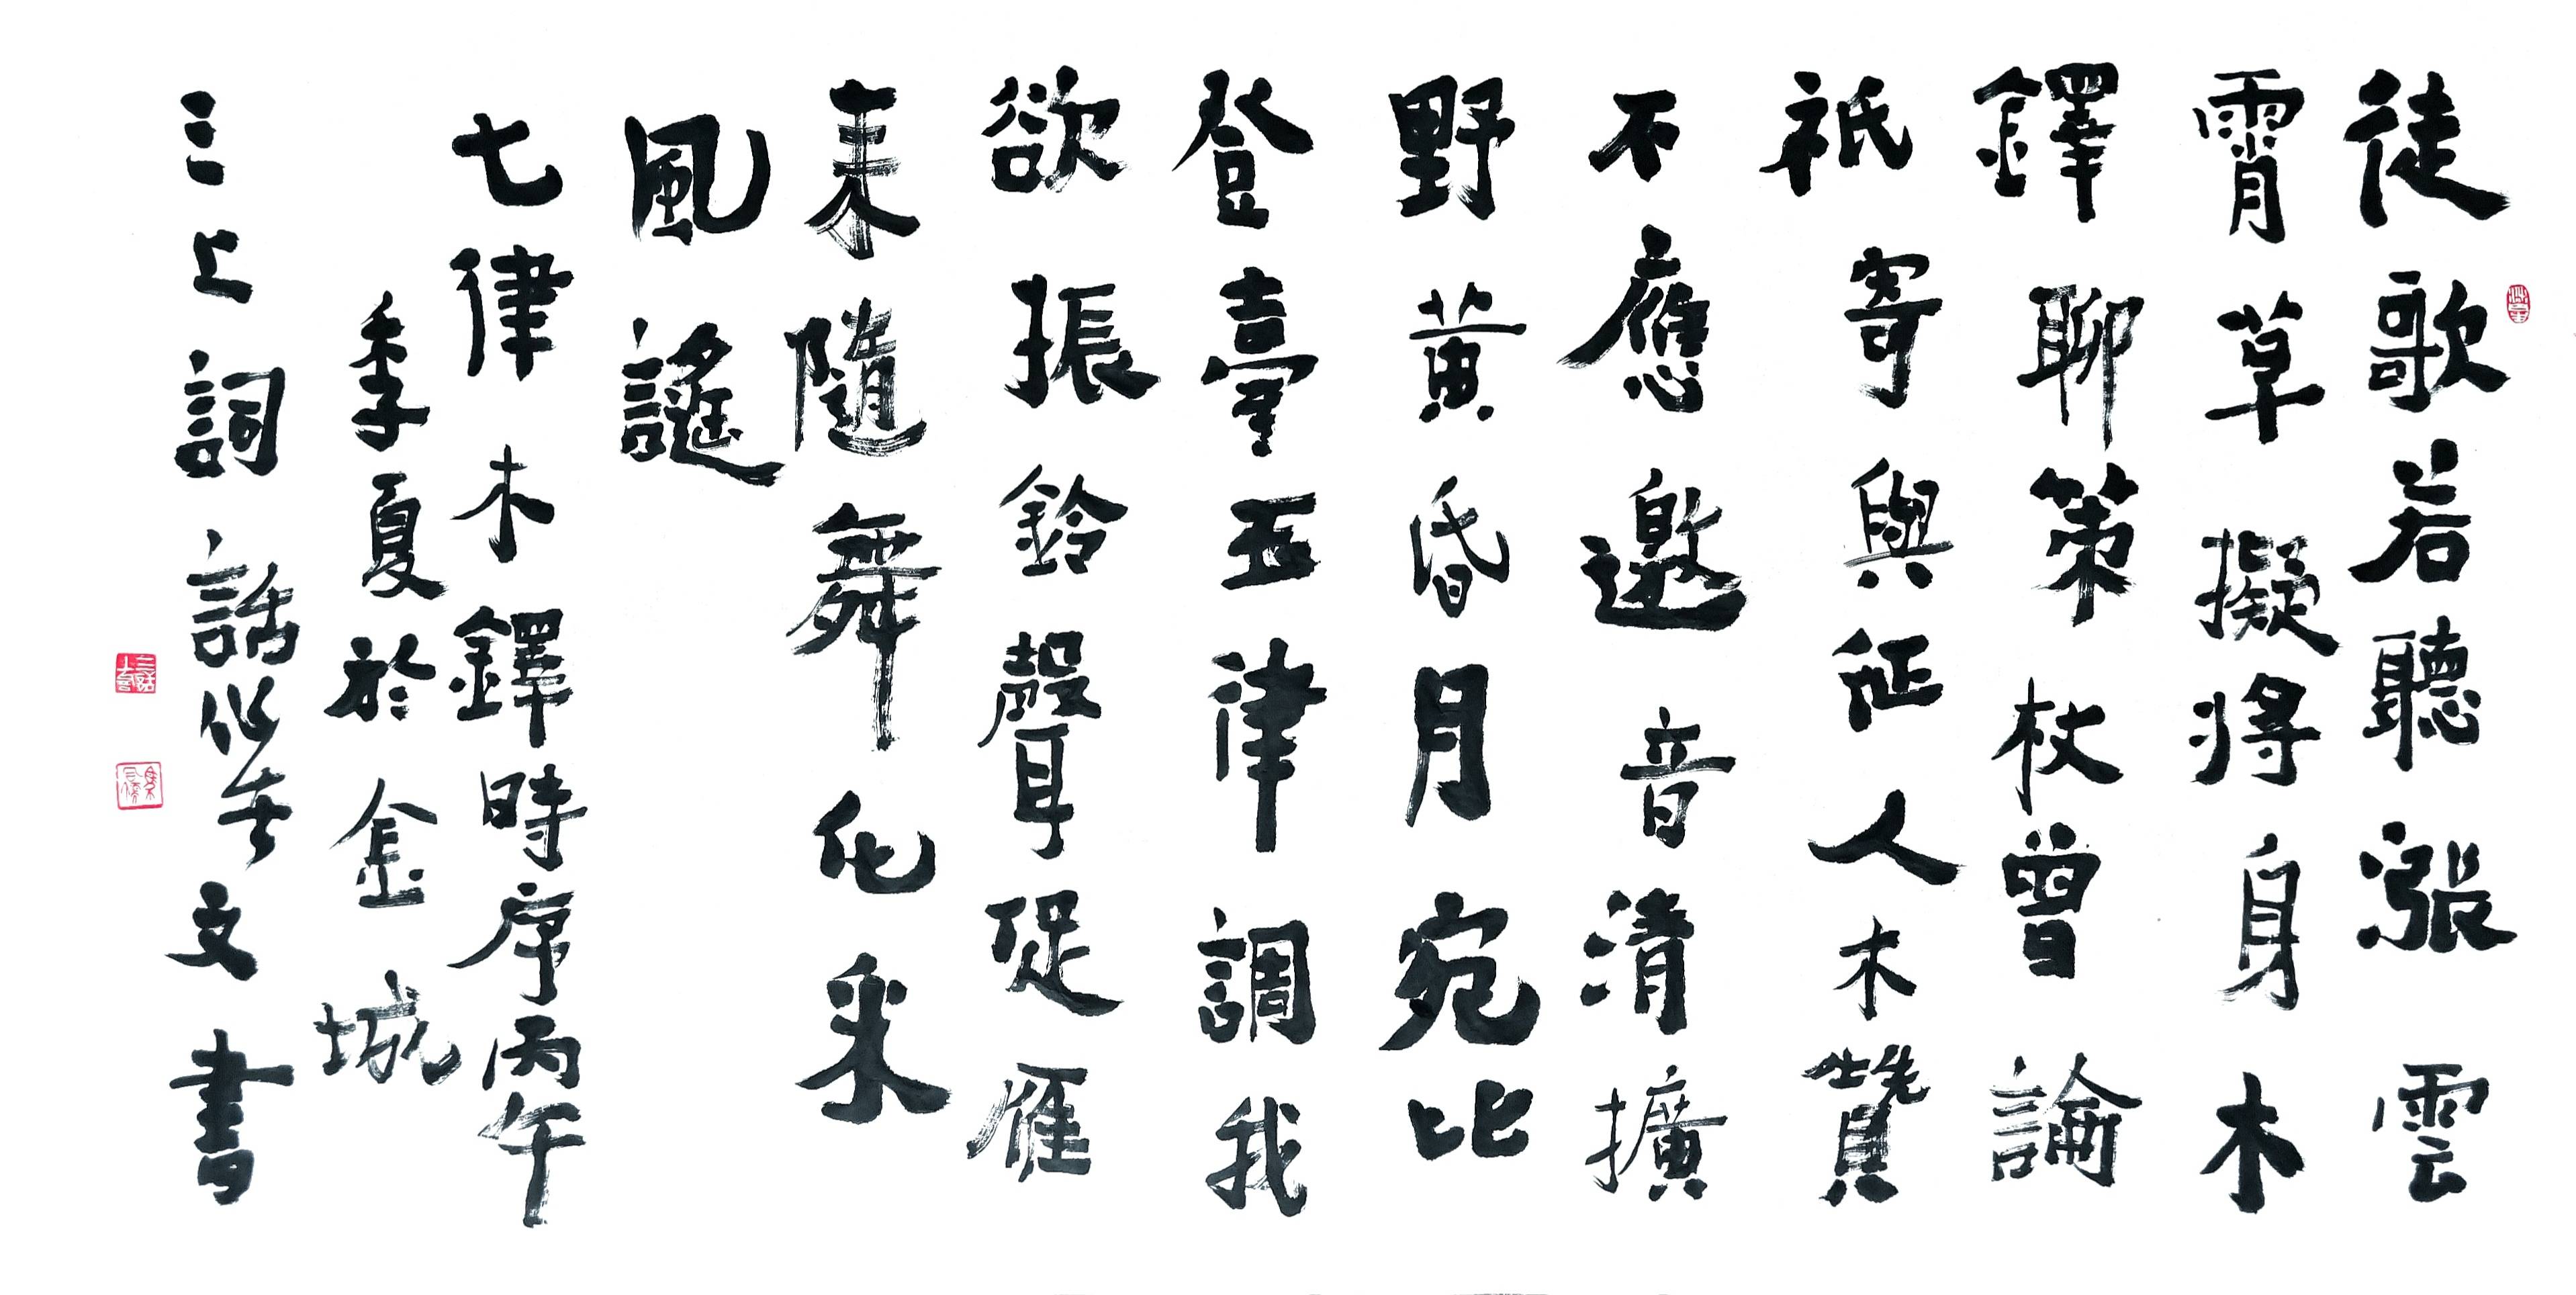 徒歌若聽漲雲
霄草擬將身木
鐸聊策杖曾論
祇寄與征人木贊
不應邀音清擴
野黃昏月宛比
登臺五律調我
欲振鈴聲促雁
來隨舞化采
風謠
七律木鐸時序丙午
季夏於金城
三上詞話文書